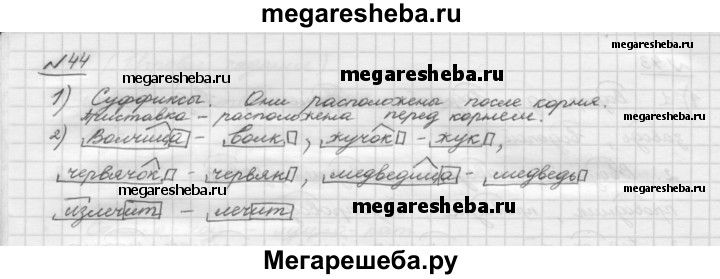 megaresheba.ru
№44
megaresheba.ru
1) Суффиксы. Они расположены после корня.
Приставка – расположена перед корнем.
megaresheba.ru
megaresheba.ru
2) Волчица – волк, жучок – жук,
червячок – червяк, медведица – медведь
megaresheba.ru
megaresheba.ru
излечит – лечит
Мегарешеба.ру